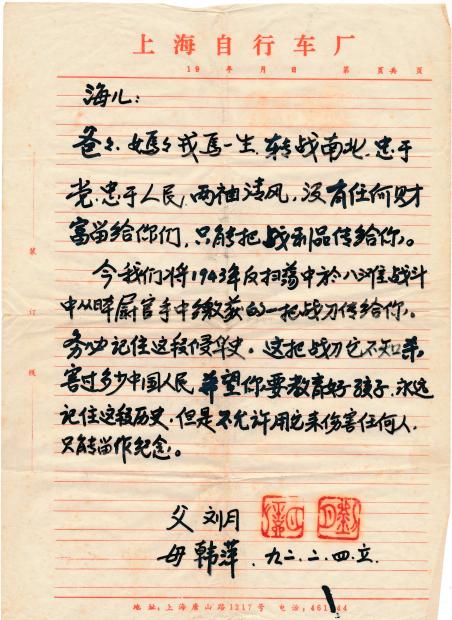 上海自行车厂
19 年 月 日 第 页共 页
海儿：
爸々、妈々戎馬一生、转战南北、忠于
党、忠于人民、两袖清风，没有任何财
富留给你们，只能把战利品传给你。
今我们将1943年反扫荡中於八滩战斗
中从尉官手中缴获的一把战刀传给你。
务必记住这段侵华史。这把战刀它不知杀
害过多少中国人民，希望你要教育好孩子，永远
记住这段历史，但是不允许用它来伤害任何人，
只能留作纪念。
父 刘月
母 韩萍、九二.二.四.立.
装
订
线
地址：上海唐山路1217号 电话：461 44